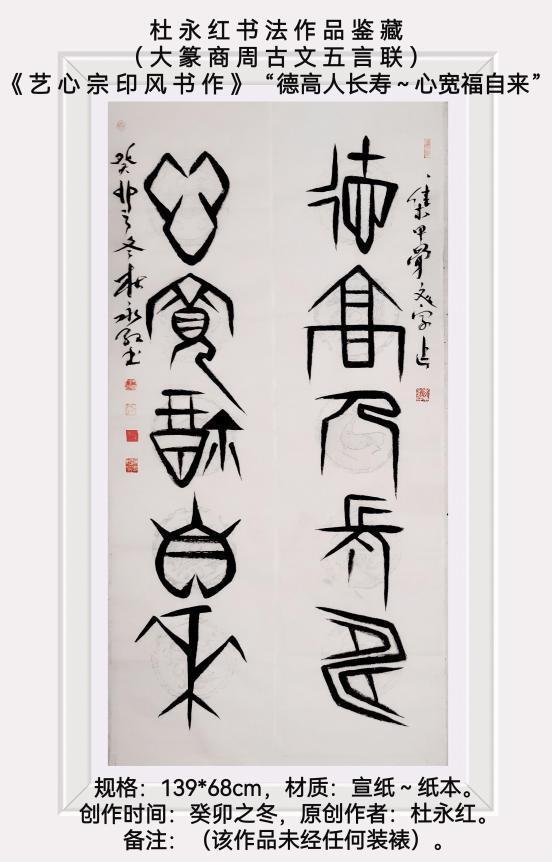 杜永红书法作品鉴藏
（大篆商周古文五言联）
《艺心宗印风书作》“德高人长寿~心宽福自来”
集甲骨文字占
德高人长寿
心宽福自来
癸卯之冬杜永红书
规格：139*68cm，材质：宣纸~纸本。
创作时间：癸卯之冬，原创作者：杜永红。
备注：（该作品未经任何装裱）。